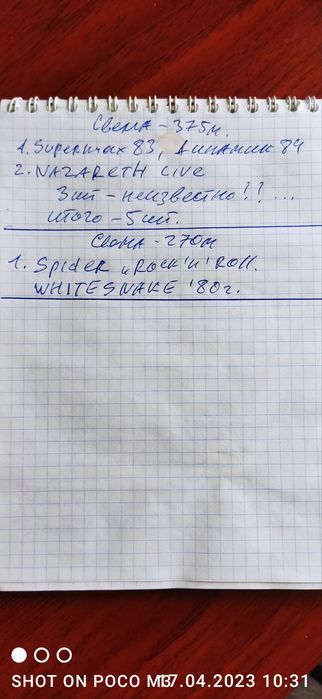 Свема - 375м.
1. Supermax 83, Динамик 84
2. NAZARETH Live
3шт - неизвестно!! ...
итого - 5шт.
Свема - 270м
1. Spider „Rock'n'Roll.
WHITESNAKE '80г.
SHOT ON POCO M3
17.04.2023 10:31